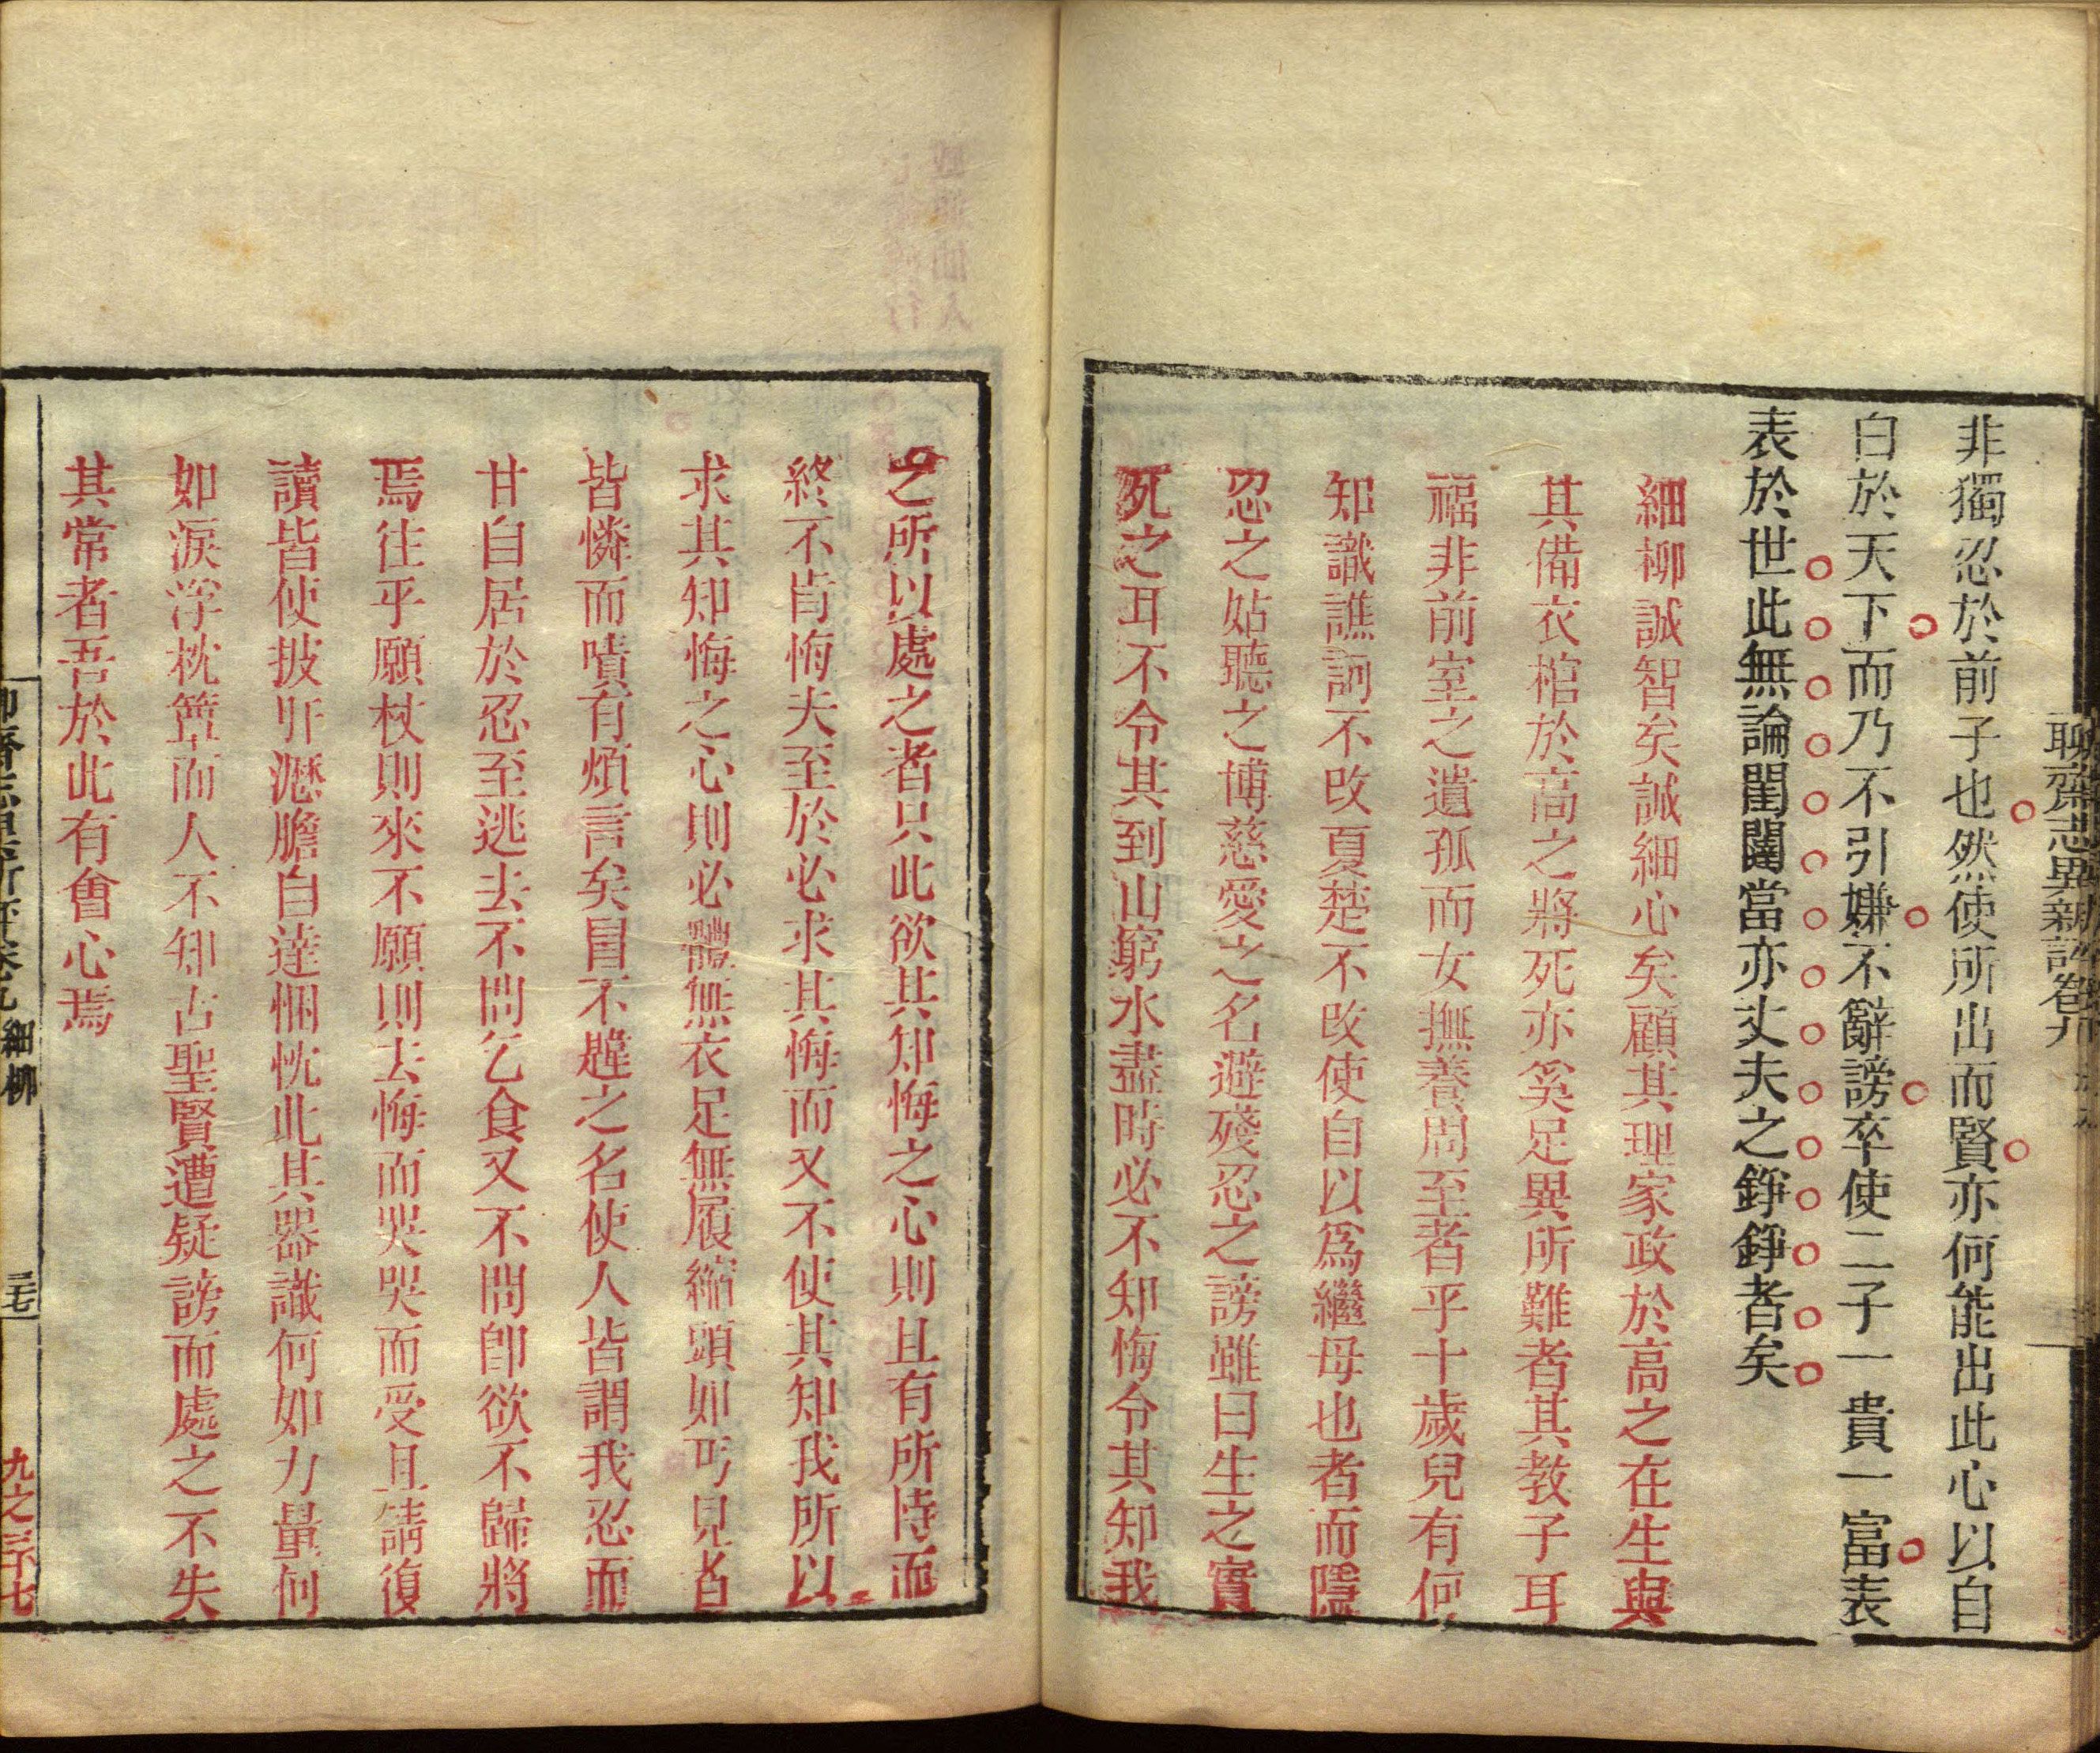 聊齋志異新評卷九
非獨忍於前子也然使所出而賢亦何能出此心以自
白於天下而乃不引嫌不辭謗卒使二子一貴一富表
表於世此無論閨闥當亦丈夫之錚錚者矣
細柳誠智矣誠細心矣顧其理家政於高之在生與
其備衣棺於高之將死亦奚足異所難者其教子耳
福非前室之遺孤而女撫養周至者乎十歲兒有何
知識譙訶不改夏楚不改使自以爲繼母也者而隱
忍之姑聽之博慈愛之名避殘忍之謗雖曰生之實
死之耳不令其到山窮水盡時必不知悔令其知我
之所以處之者只此欲其知悔之心則且有所恃而
終不肯悔夫至於必求其悔而又不使其知我所以
求其知悔之心則必體無衣足無履縮頭如丐兒者
皆憐而嘖有煩言矣冒不韙之名使人皆謂我忍而
甘自居於忍至逃去不問乞食又不問卽欲不歸將
焉往乎願杖則來不願則去悔而哭哭而受且請復
讀皆使披肝瀝膽自達悃忱此其器識何如力量何
如淚浮枕簟而人不知古聖賢遭疑謗而處之不失
其常者吾於此有會心焉
聊齋志異新評卷九 細柳 三七 九之三十七